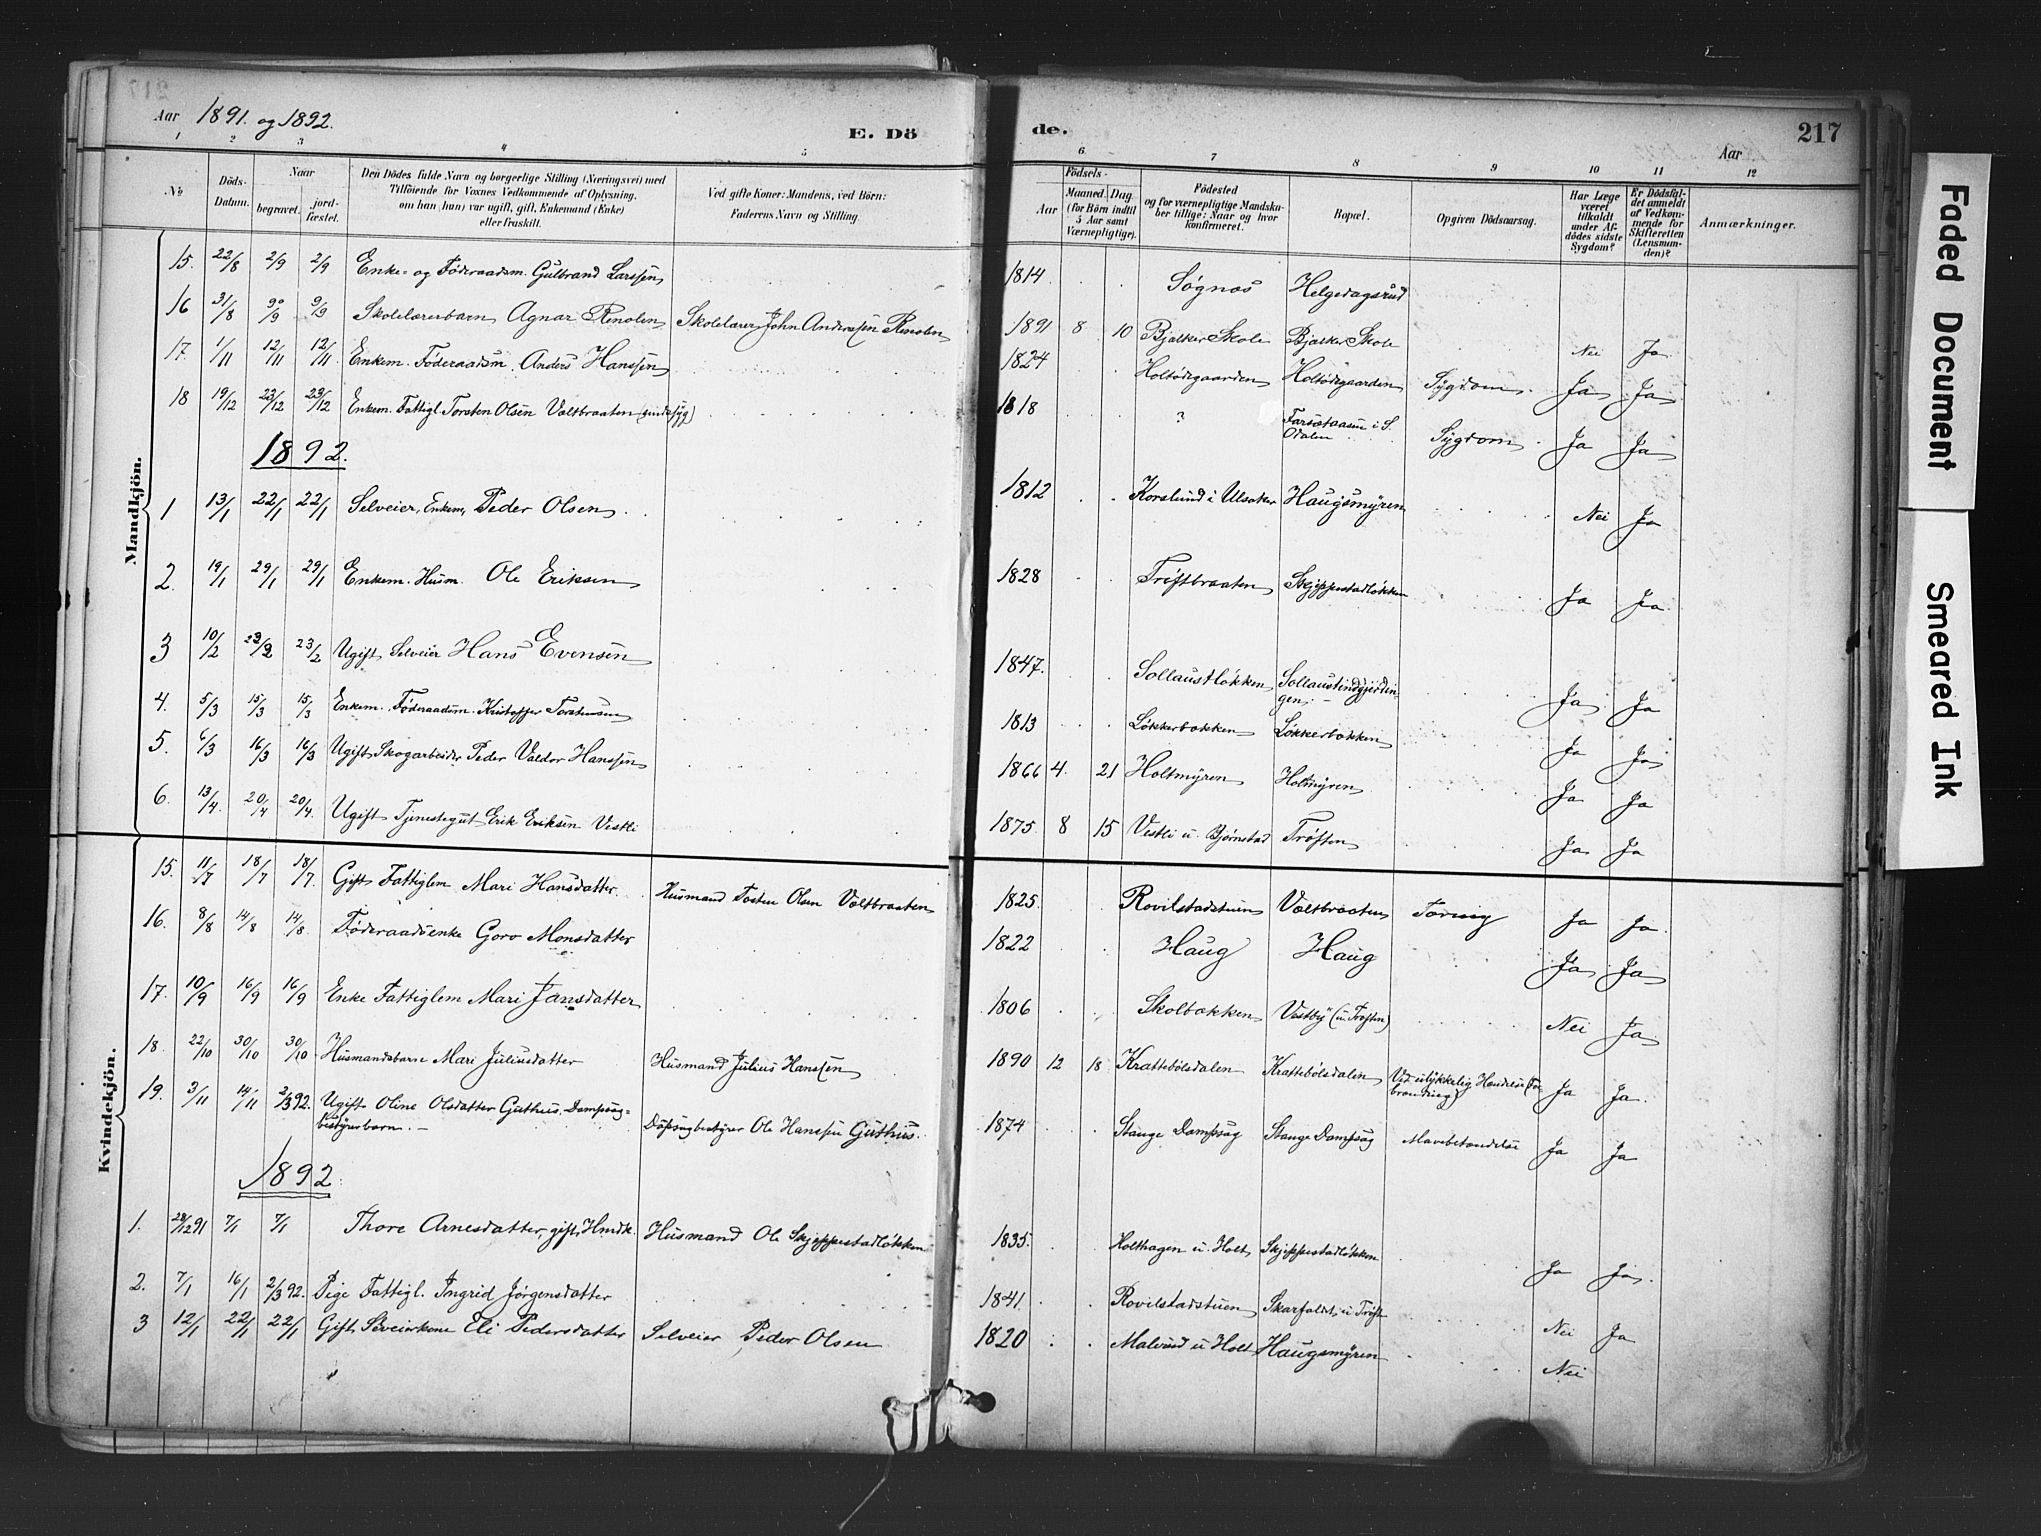 217
Aar 1891. og 1892.
E. Dö
de.
Aar
217
1 2 3 4 5 6. 7 8 9 10 11 12
№
Döds-Datum.
Naar
begravet.
jord-fæstet.
Den Dödes fulde Navn og borgerlige Stilling (Næringsvei) med
Tilföiende for Voxnes Vedkommende af Oplysning,
om han (hun) var ugift, gift, Enkemand (Enke)
eller fraskilt.
Ved gifte Koner: Mandens, ved Börn:
Faderens Navn og Stilling.
Födsels-
Aar
Maaned. Dag.
(for Börn indtil
5 Aar samt
Værnepligtige).
Födested
og for værnepligtige Mandska-
ber tillige: Naar og hvor
konfirmeret.
Bopæl.
Opgiven Dödsaarsag.
Har Læge
været
tilkaldt
under Af-
dödes sidste
Sygdom?
Er Dödsfal-
det anmeldt
af Vedkom-
mende for
Skifteretten
(Lensman-
den)?
Anmærkninger.
Mandkjön.
15. 22/8 2/9 2/9 Enke- og Føderaadsm. Gulbrand Larssen 1814 Søgnæs Helgedagsrud
16 31/8 9/9 9/9 Skolelærerbarn Agnar Renolen Skolelærer John Anderssen Renolen 1891 8 10 Bjælker Skole Bjælker Skole Nei Ja
17. 1/11 12/11 12/11 Enkem. Føderaadsm. Anders Hanssen 1824 Holtødegaarden Holtødegaarden Sygdom Ja Ja
18 19/12 23/12 23/12 Enkem. Fattigl. Torsten Olsen Valtbraaten (sindssyg) 1818 ? i S. Odalen Sygdom Ja Ja
1892.
1 13/1 22/1 22/1 Selveier, Enkem, Peder Olsen 1812 Korslund i Ulsaker Haugsmyren Nei Ja
2. 19/1 29/1 29/1 Enkem. Husm. Ole Eriksen 1828 Trøftbraaten Skjeppestadløkken Ja Ja
3 10/2 23/2 23/2 Ugift Selveier Hans Evensen 1847. Sollaustløkken Sollaustindgjerdin-
gen. Ja Ja
4. 5/3 15/3 15/3 Enkem. Føderaadsm. Kristoffer Torstensen 1813 Løkkerbakken Løkkerbakken Ja Ja
5. 6/3 16/3 16/3 Ugift Skogarbeider Peder Valdor Hanssen 1866 4. 21 Holtmyren Holtmyren Ja Ja
6. 13/4. 20/4 20/4. Ugift Tjenestegut Erik Eriksen Vestli 1875. 8 15 Vestli u. Bjørnstad Trøften Ja Ja
Kvindekjön.
15. 11/7 18/7 18/7. Gift Fattiglem Mari Hansdatter Husmand Tosten Olsen Valtbraaten 1825. Rovilstadstuen Valtbraaten Tæring Ja Ja
16. 8/8 14/8 14/8. Føderaadsenke Goro Monsdatter 1822 Haug Haug Ja Ja
17. 10/9 16/9 16/9 Enke Fattiglem Mari Jansdatter 1806 Skolbakken Vestby (u. Trøften) Nei Ja
18. 22/10 30/10 30/10 Husmandsbarn Mari Juliusdatter Husmand Julius Hanssen 1890 12 18 Krattebølsdalen Krattebølsdalen Ved ulykkelig Hændelse (Fo-
brænding) Ja Ja.
19. 3/11 14/11 2/3 92. Ugift Oline Olsdatter Guthus, Dampsag-
bestyrerbarn. Dampsagbestyrer Ole Hanssen Guthus. 1874 Stange Dampsag Stange Dampsag Mavebetændelse Ja Ja
1892.
1. 28/12 91 7/1 7/1 Thore Arnesdatter, gift, Hmdk. Husmand Ole Skjeppestadløkken 1835. Holthagen u. Holt Skjeppestadløkken Ja Ja.
2. 7/1 16/1 2/3 92. Pige Fattigl. Ingrid Jørgensdatter 1841. Rovilstadstuen u. Trøft Nei Ja
3 12/1 22/1 22/1 Gift Selveierkone Eli Pedersdatter Selveier Peder Olsen 1820 Malerud u Holt Haugsmyren Nei
Faded Document
Smeared Ink